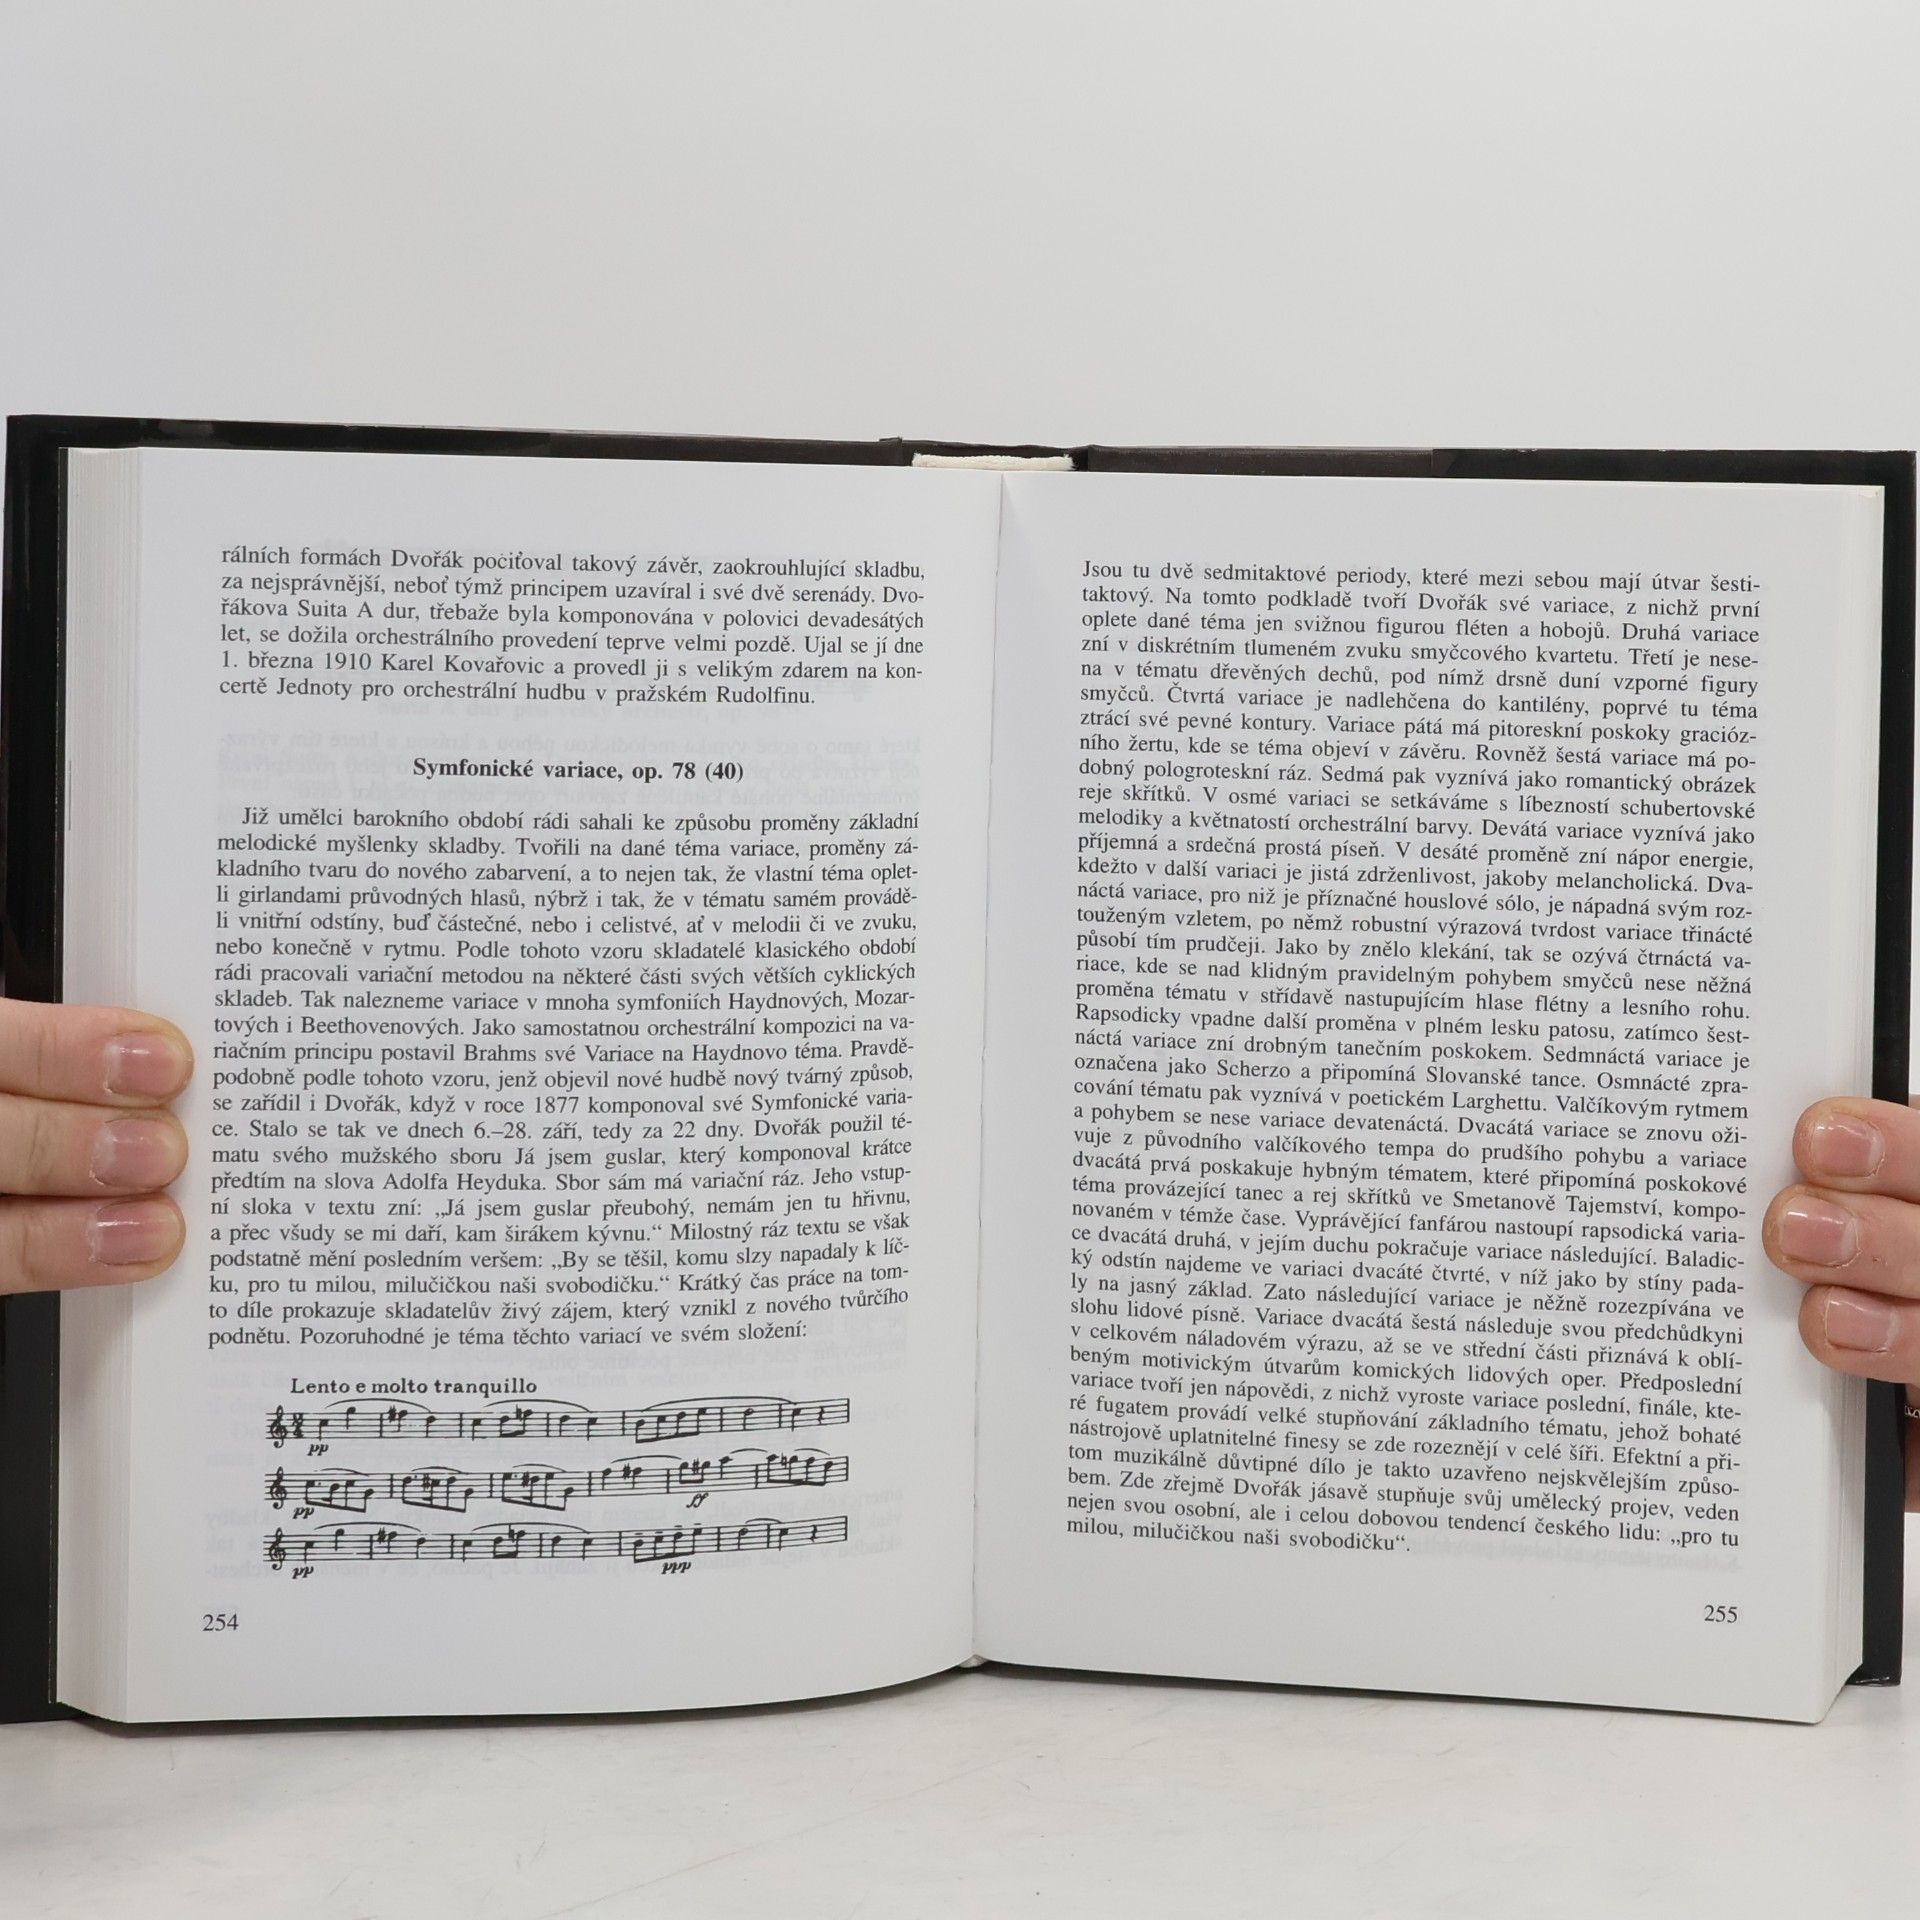 rálních formách Dvořák pociťoval takový závěr, zaokrouhlující skladbu,
za nejsprávnější, neboť týmž principem uzavíral i své dvě serenády. Dvo-
řákova Suita A dur, třebaže byla komponována v polovici devadesátých
let, se dožila orchestrálního provedení teprve velmi pozdě. Ujal se jí dne
1. března 1910 Karel Kovařovic a provedl ji s velikým zdarem na kon-
certě Jednoty pro orchestrální hudbu v pražském Rudolfinu.
Symfonické variace, op. 78 (40)
Již umělci barokního období rádi sahali ke způsobu proměny základní
melodické myšlenky skladby. Tvořili na dané téma variace, proměny zá-
kladního tvaru do nového zabarvení, a to nejen tak, že vlastní téma oplet-
li girlandami průvodných hlasů, nýbrž i tak, že v tématu samém prováde-
li vnitřní odstíny, buď částečné, nebo i celistvé, ať v melodii či ve zvuku,
nebo konečně v rytmu. Podle tohoto vzoru skladatelé klasického období
rádi pracovali variační metodou na některé části svých větších cyklických
skladeb. Tak nalezneme variace v mnoha symfoniích Haydnových, Mozar-
tových i Beethovenových. Jako samostatnou orchestrální kompozici na va-
riačním principu postavil Brahms své Variace na Haydnovo téma. Pravdě-
podobně podle tohoto vzoru, jenž objevil nové hudbě nový tvárný způsob,
se zařídil i Dvořák, když v roce 1877 komponoval své Symfonické varia-
ce. Stalo se tak ve dnech 6.–28. září, tedy za 22 dny. Dvořák použil té-
matu svého mužského sboru Já jsem guslar, který komponoval krátce
předtím na slova Adolfa Heyduka. Sbor sám má variační ráz. Jeho vstup-
ní sloka v textu zní: „Já jsem guslar přeubohý, nemám jen tu hřivnu,
a přec všudy se mi daří, kam širákem kývnu.“ Milostný ráz textu se však
podstatně mění posledním veršem: „By se těšil, komu slzy napadaly k líč-
ku, pro tu milou, milučičkou naši svobodičku.“ Krátký čas práce na tom-
to díle prokazuje skladatelův živý zájem, který vznikl z nového tvůrčího
podnětu. Pozoruhodné je téma těchto variací ve svém složení:
Lento e molto tranquillo
pp
pp ff
pp ppp
254
Jsou tu dvě sedmitaktové periody, které mezi sebou mají útvar šesti-
taktový. Na tomto podkladě tvoří Dvořák své variace, z nichž první
oplete dané téma jen svižnou figurou fléten a hobojů. Druhá variace
zní v diskrétním tlumeném zvuku smyčcového kvartetu. Třetí je nese-
na v tématu dřevěných dechů, pod nímž drsně duní vzporné figury
smyčců. Čtvrtá variace je nadlehčena do kantilény, poprvé tu téma
ztrácí své pevné kontury. Variace pátá má pitoreskní poskoky gracióz-
ního žertu, kde se téma objeví v závěru. Rovněž šestá variace má po-
dobný pologroteskní ráz. Sedmá pak vyznívá jako romantický obrázek
reje skřítků. V osmé variaci se setkáváme s líbezností schubertovské
melodiky a květnatostí orchestrální barvy. Devátá variace vyznívá jako
příjemná a srdečná prostá píseň. V desáté proměně zní nápor energie,
kdežto v další variaci je jistá zdrženlivost, jakoby melancholická. Dva-
náctá variace, pro niž je příznačné houslové sólo, je nápadná svým roz-
touženým vzletem, po němž robustní výrazová tvrdost variace třinácté
působí tím prudčeji. Jako by znělo klekání, tak se ozývá čtrnáctá va-
riace, kde se nad klidným pravidelným pohybem smyčců nese něžná
proměna tématu v střídavě nastupujícím hlase flétny a lesního rohu.
Rapsodicky vpadne další proměna v plném lesku patosu, zatímco šest-
náctá variace zní drobným tanečním poskokem. Sedmnáctá variace je
označena jako Scherzo a připomíná Slovanské tance. Osmnácté zpra-
cování tématu pak vyznívá v poetickém Larghettu. Valčíkovým rytmem
a pohybem se nese variace devatenáctá. Dvacátá variace se znovu oži-
vuje z původního valčíkového tempa do prudšího pohybu a variace
dvacátá prvá poskakuje hybným tématem, které připomíná poskokové
téma provázející tanec a rej skřítků ve Smetanově Tajemství, kompo-
novaném v témže čase. Vyprávějící fanfárou nastoupí rapsodická varia-
ce dvacátá druhá, v jejím duchu pokračuje variace následující. Baladic-
ký odstín najdeme ve variaci dvacáté čtvrté, v níž jako by stíny pada-
ly na jasný základ. Zato následující variace je něžně rozezpívána ve
slohu lidové písně. Variace dvacátá šestá následuje svou předchůdkyni
v celkovém náladovém výrazu, až se ve střední části přiznává k oblí-
beným motivickým útvarům komických lidových oper. Předposlední
variace tvoří jen nápovědi, z nichž vyroste variace poslední, finále, kte-
ré fugatem provádí velké stupňování základního tématu, jehož bohaté
nástrojově uplatnitelné finesy se zde rozeznějí v celé šíři. Efektní a při-
tom muzikálně důvtipné dílo je takto uzavřeno nejskvělejším způso-
bem. Zde zřejmě Dvořák jásavě stupňuje svůj umělecký projev, veden
nejen svou osobní, ale i celou dobovou tendencí českého lidu: „pro tu
milou, milučičkou naši svobodičku“.
255